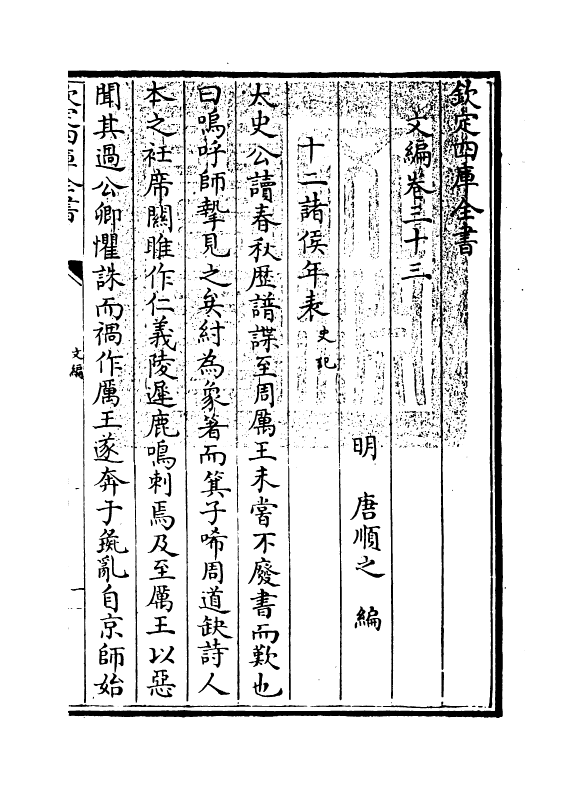 欽定四庫全書
文編卷三十三
明 唐順之 編
十二諸侯年表 史記
太史公讀春秋歴譜諜至周厲王未嘗不廢書而歎也
曰嗚呼師摯見之矣紂為象箸而箕子唏周道缺詩人
本之衽席關雎作仁義陵遲鹿鳴刺焉及至厲王以惡
聞其過公卿懼誅而禍作厲王遂奔于彘亂自京師始
欽定四庫全書
文編
一